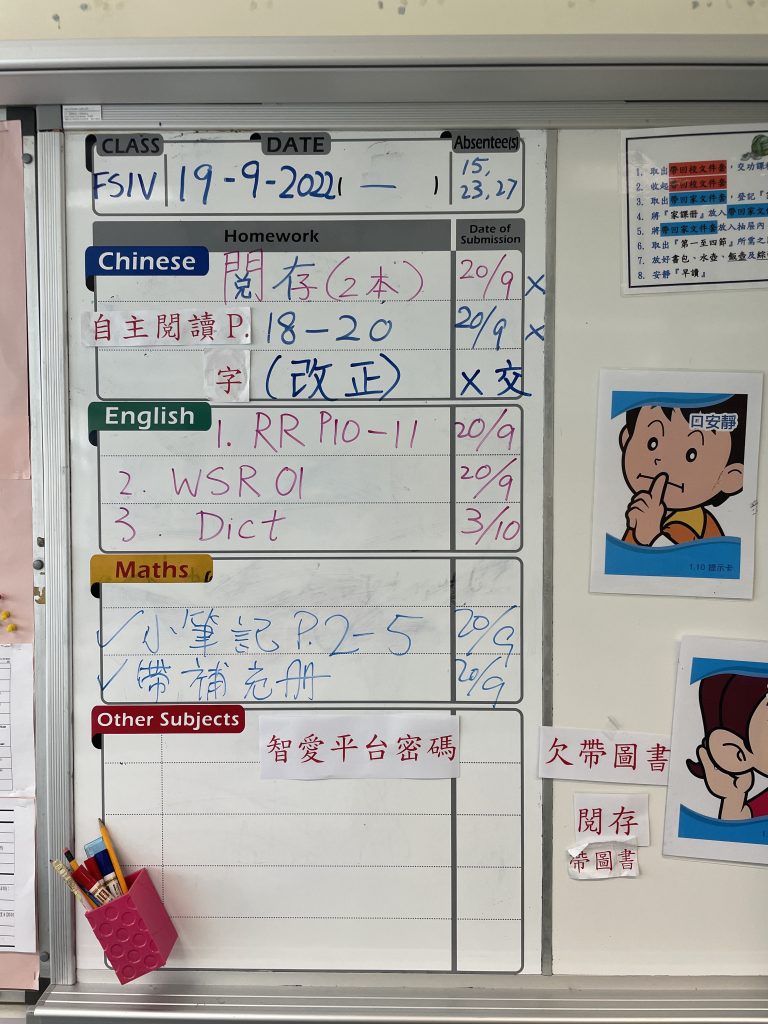 CLASS DATE Absentee(s)
FSIV 19-9-2022 ( — ) 15,
23,27
Homework Date of
Submission
Chinese 閱存(2本) 20/9 ×
自主閱讀P. 18-20 20/9 ×
字 (改正) × 交
English 1. RR P10-11 20/9
2. WSR 01 20/9
3. Dict 3/10
Maths
✓小筆記 P.2-5 20/9
✓帶補充冊 20/9
Other Subjects
智愛平台密碼
1. 取出帶回校文件套,交功課
2. 收起帶回校文件套
3. 取出帶回家文件套,登記『
4. 將『家課冊』放入帶回家文件
5. 將帶回家文件套放入抽屜內
6. 取出『第一至四節』所需之
7. 放好書包、水壺、飯壺及綜
8. 安靜『早讀』
口安靜
1.10 提示卡
欠帶圖書
閱存
帶圖書